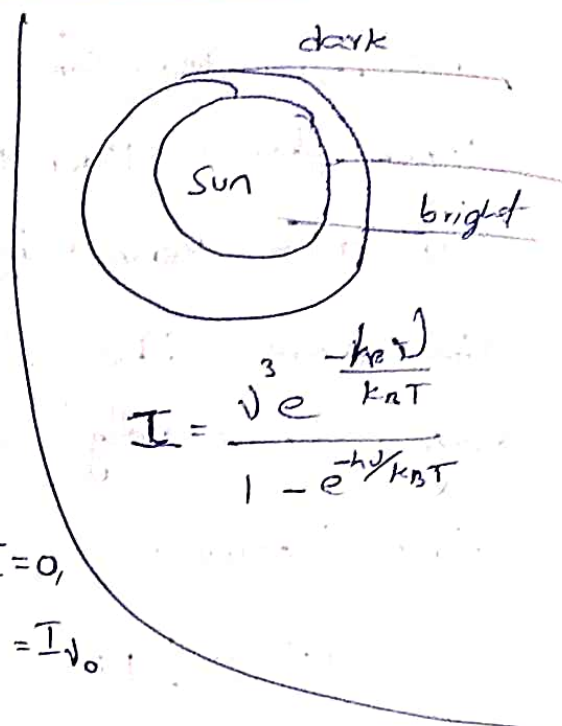 dark
Sun
bright
I = ν³ e^(-hν/k_BT) / (1 - e^(-hν/k_BT))
I = 0,
= I_ν₀